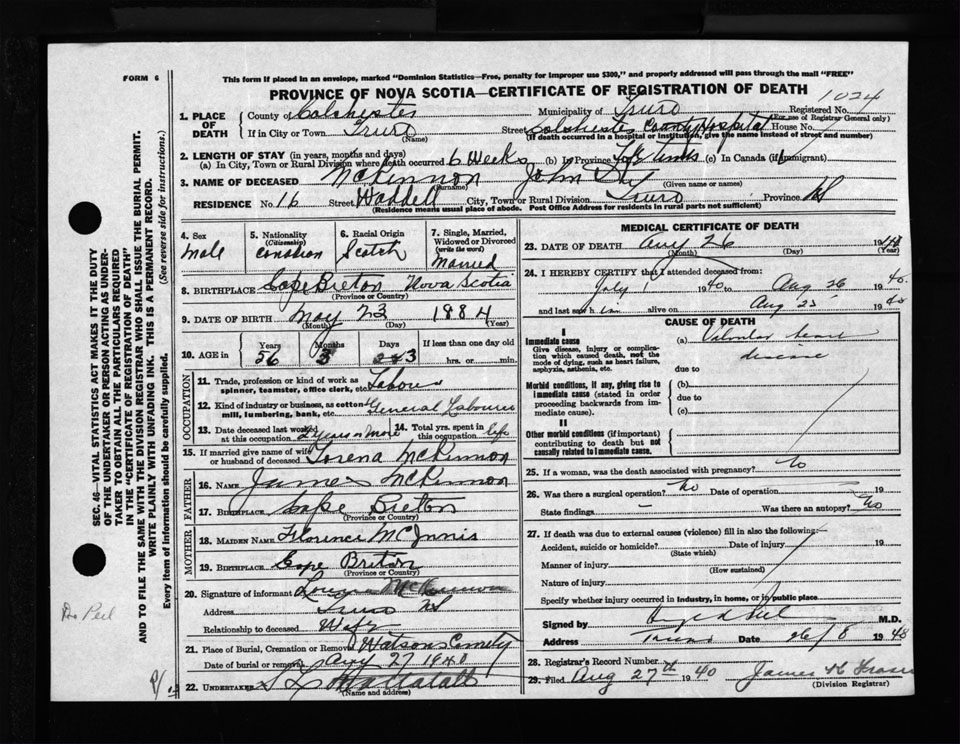 FORM 6
This form if placed in an envelope, marked "Dominion Statistics—Free, penalty for improper use $300," and properly addressed will pass through the mail "FREE"
PROVINCE OF NOVA SCOTIA—CERTIFICATE OF REGISTRATION OF DEATH
1024
1. PLACE OF DEATH
County of Colchester Municipality of Truro Registered No.
(For use of Registrar General only)
If in City or Town Truro Street Colchester County Hospital House No.
(Name) (If death occurred in a hospital or institution, give the name instead of street and number)
2. LENGTH OF STAY (in years, months and days)
(a) In City, Town or Rural Division where death occurred 6 Weeks (b) in Province (c) In Canada (if immigrant)
3. NAME OF DECEASED McKinnon John
(Surname) (Given name or names)
RESIDENCE No. 16 Street Waddell City, Town or Rural Division Truro Province NS
(Residence means usual place of abode. Post Office Address for residents in rural parts not sufficient)
4. Sex
Male
5. Nationality
(Citizenship)
Canadian
6. Racial Origin
Scotch
7. Single, Married, Widowed or Divorced
(write the word)
Married
8. BIRTHPLACE Cape Breton Nova Scotia
(Province or Country)
9. DATE OF BIRTH May 23 1884
(Month) (Day) (Year)
10. AGE in
Years Months Days If less than one day old
56 3 3 hrs. or min.
OCCUPATION
11. Trade, profession or kind of work as spinner, teamster, office clerk, etc. Labour
12. Kind of industry or business, as cotton mill, lumbering, bank, etc. General Labourer
13. Date deceased last worked at this occupation
14. Total yrs. spent in this occupation life
15. If married give name of wife or husband of deceased Lorena McKinnon
FATHER
16. NAME James McKinnon
17. BIRTHPLACE Cape Breton
(Province or Country)
MOTHER
18. MAIDEN NAME Florence McInnis
19. BIRTHPLACE Cape Breton
(Province or Country)
20. Signature of informant McKinnon
Address Truro NS
Relationship to deceased Wife
21. Place of Burial, Cremation or Removal Watsons Cemetry
Date of burial or removal Aug 27 1940
22. UNDERTAKER
(Name and address)
MEDICAL CERTIFICATE OF DEATH
23. DATE OF DEATH Aug 26 1940
(Month) (Day) (Year)
24. I HEREBY CERTIFY that I attended deceased from:
July 1 1940 to Aug 26 1940
and last saw him alive on Aug 25 1940
CAUSE OF DEATH
I
Immediate cause
Give disease, injury or complication which caused death, not the mode of dying, such as heart failure, asphyxia, asthenia, etc.
(a) Valvular heart
disease
due to
Morbid conditions, if any, giving rise to immediate cause (stated in order proceeding backwards from immediate cause).
(b)
due to
(c)
II
Other morbid conditions (if important) contributing to death but not causally related to immediate cause.
25. If a woman, was the death associated with pregnancy? No
26. Was there a surgical operation? No Date of operation 19
State findings - Was there an autopsy? No
27. If death was due to external causes (violence) fill in also the following:
Accident, suicide or homicide? Date of injury 19
(State which)
Manner of injury
(How sustained)
Nature of injury
Specify whether injury occurred in industry, in home, or in public place
Signed by M.D.
Address Truro Date 26/8 1940
28. Registrar's Record Number
29. Filed Aug 27th 1940 James
(Division Registrar)
SEC. 46—VITAL STATISTICS ACT MAKES IT THE DUTY
OF THE UNDERTAKER OR PERSON ACTING AS UNDERTAKER TO OBTAIN ALL THE PARTICULARS REQUIRED
IN THE "CERTIFICATE OF REGISTRATION OF DEATH"
AND TO FILE THE SAME WITH THE DIVISION REGISTRAR WHO SHALL ISSUE THE BURIAL PERMIT.
WRITE PLAINLY WITH UNFADING INK. THIS IS A PERMANENT RECORD.
Every item of Information should be carefully supplied. (See reverse side for instructions.)